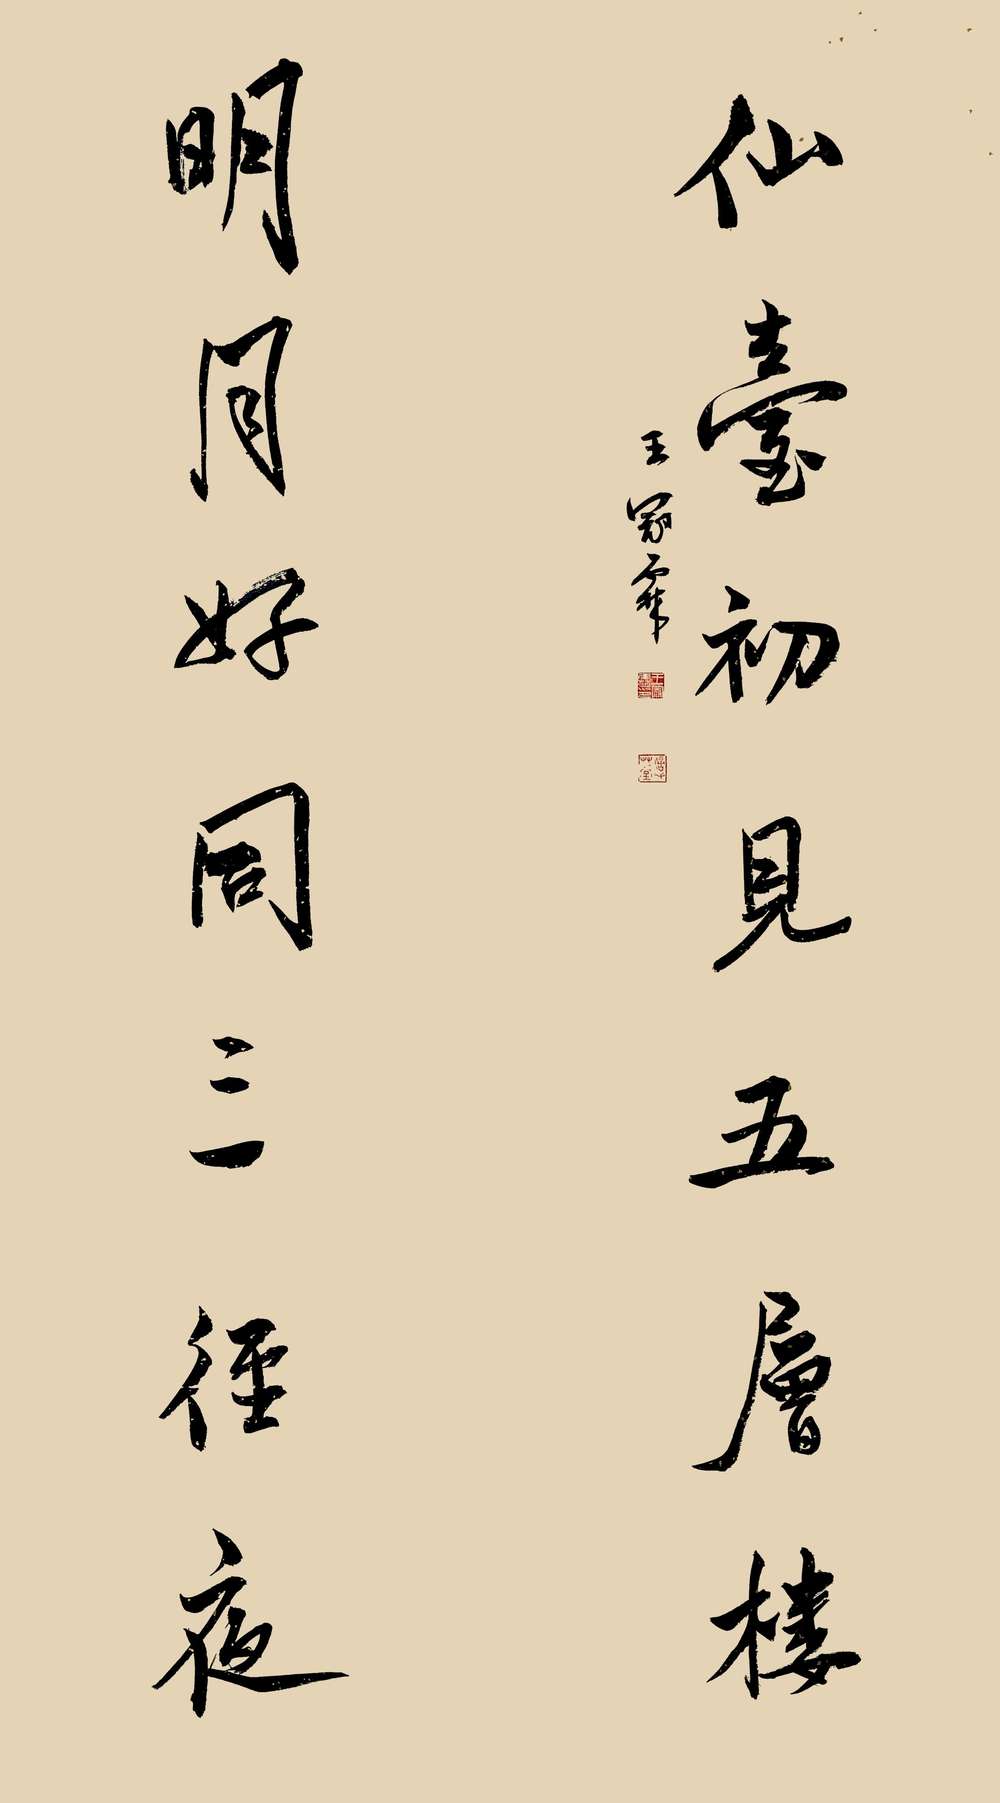 仙臺初見五層楼
王
明月好同三徑夜